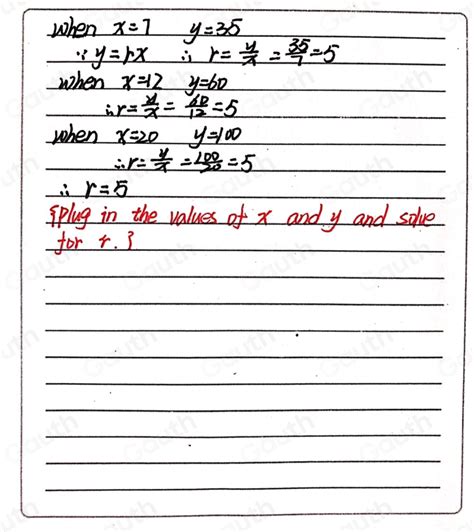 when x=7 y=35
∵ y=rx ∴ r=y/x=35/7=5
when x=12 y=60
∴ r=y/x=60/12=5
when x=20 y=100
∴ r=y/x=100/20=5
∴ r=5
{plug in the values of x and y and solve
for r.}
Gauth